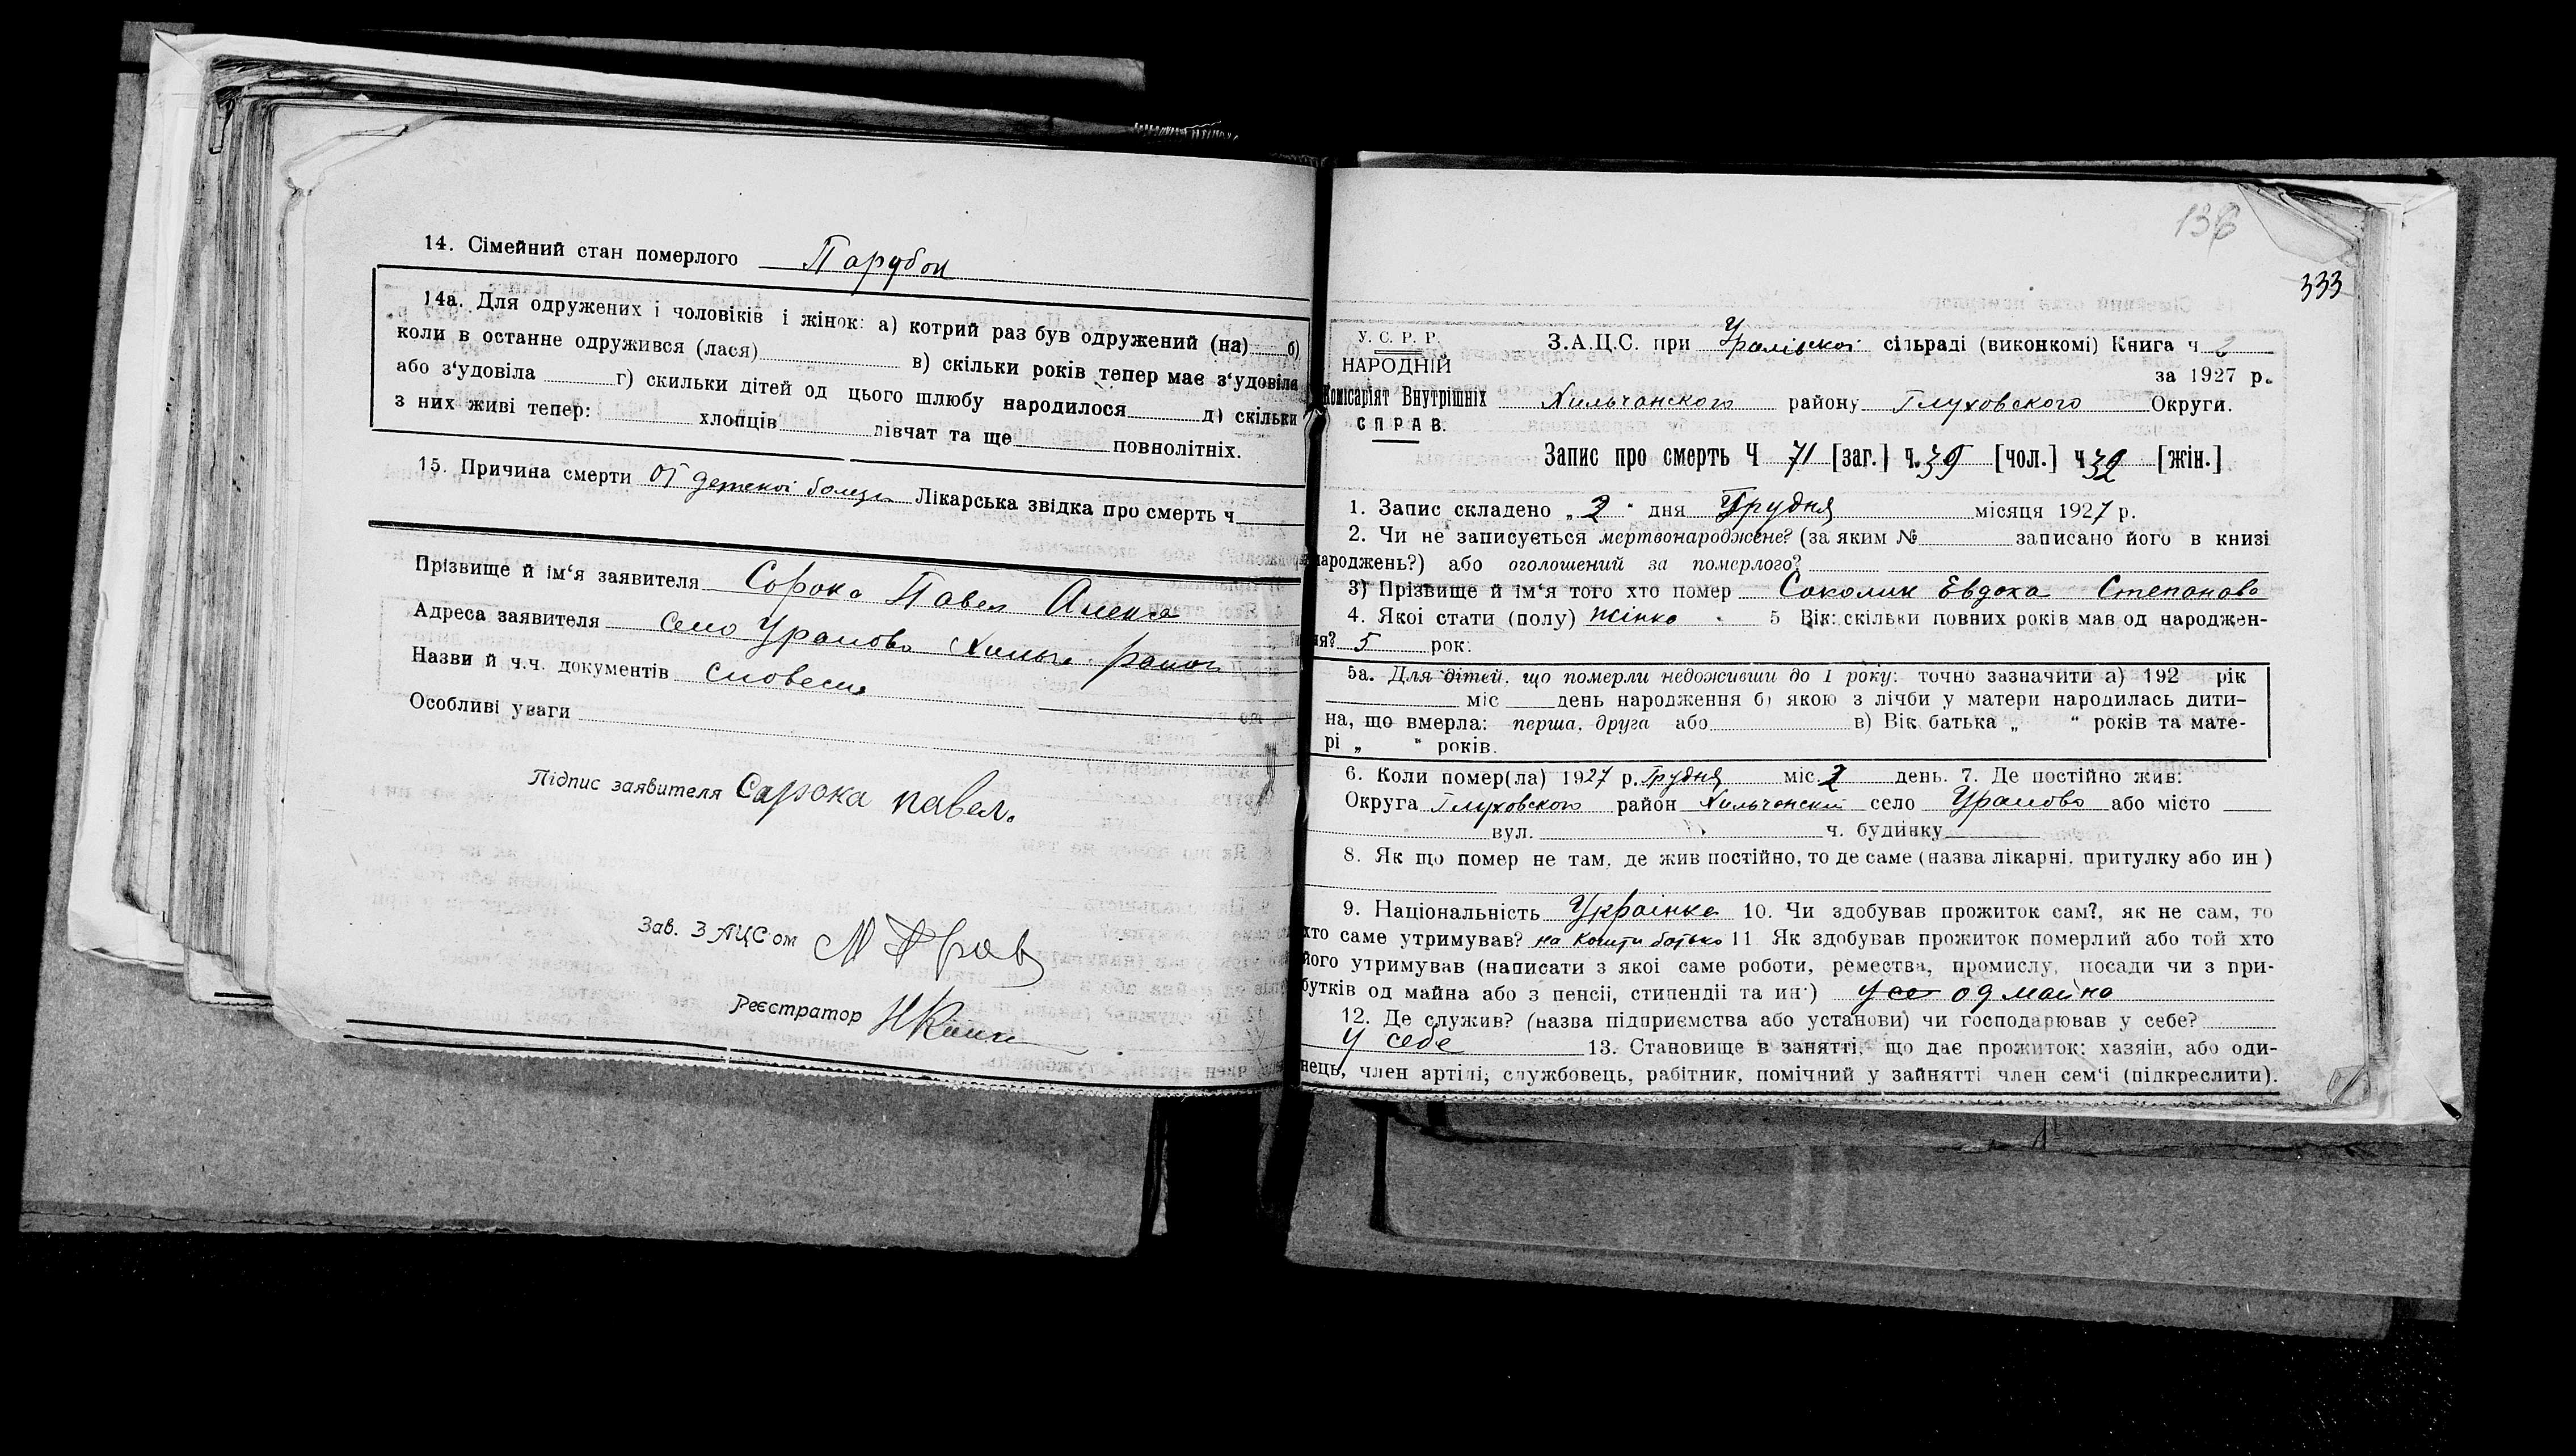 14. Сімейний стан померлого Парубок
14а. Для одружених і чоловіків і жінок: а) котрий раз був одружений (на) б)
коли в останне одружився (лася) в) скільки років тепер має з‘удовіла
або з‘удовіла г) скильки дітей од цього шлюбу народилося д) скільки
з них живі тепер: хлопців дівчат та ще повнолітніх.
15. Причина смерти От детской Лікарська звідка про смерть ч
Прізвище й ім‘я заявителя Сорока Павел Алекса
Адреса заявителя Село Уралово Хильч. район
Назви й ч.ч. документів Словесна
Особливі уваги
Підпис заявителя Сарока павел.
Зав. ЗАЦСом
Реєстратор
138
333
У. С. Р. Р.
НАРОДНІЙ
Комісаріят Внутрішніх
СПРАВ.
З.А.Ц.С. при Уралівской сільраді (виконкомі) Книга ч 2
за 1927 р.
Хильчанского району Глуховского Округи.
Запис про смерть Ч 71 [заг.] ч. 39 [чол.] ч 32 [жін.]
1. Запис складено „ 2 “ дня Грудня місяця 1927 р.
2. Чи не записується мертвонароджене? (за яким № записано його в книзі
народжень?) або оголошений за померлого?
3) Прізвище й ім‘я того хто помер Соколик Евдоха Степанова
4. Якої стати (полу) Жінка 5 Вік: скільки повних років мав од народжен-
ня? 5 рок.
5а. Для дітей, що померли недоживши до 1 року: точно зазначити а) 192 рік
міс день народження б) якою з лічби у матери народилась дити-
на, що вмерла: перша, друга або в) Вік батька „ “ років та мате-
рі „ “ років.
6. Коли помер(ла) 1927 р. Грудня міс. 2 день. 7. Де постійно жив:
Округа Глуховского район Хильчанский село Уралово або місто
вул. ч. будинку
8. Як що помер не там, де жив постійно, то де саме (назва лікарні, притулку або ин)
9. Національність Українка 10. Чи здобував прожиток сам?, як не сам, то
хто саме утримував? на кошти батька 11 Як здобував прожиток померлий або той хто
його утримував (написати з якоі саме роботи, ремества, промислу, посади чи з при-
бутків од майна або з пенсіі, стипендіі та ин.) од майна
12. Де служив? (назва підприємства або установи) чи господарював у себе?
У себе 13. Становище в занятті, що дає прожиток: хазяін, або оди-
нець, член артілі, службовець, рабітник, помічний у зайнятті член сем‘і (підкреслити).